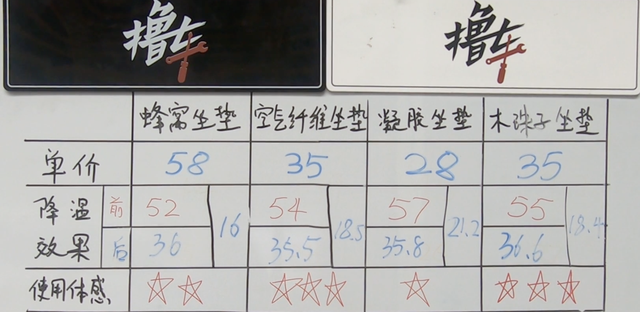 撸车 撸车
蜂窝坐垫 空气纤维坐垫 凝胶坐垫 木珠子坐垫
单价 58 35 28 35
降温效果 前 52 16 54 18.5 57 21.2 55 18.4
后 36 35.5 35.8 36.6
使用体感 ☆☆ ☆☆☆ ☆ ☆☆☆